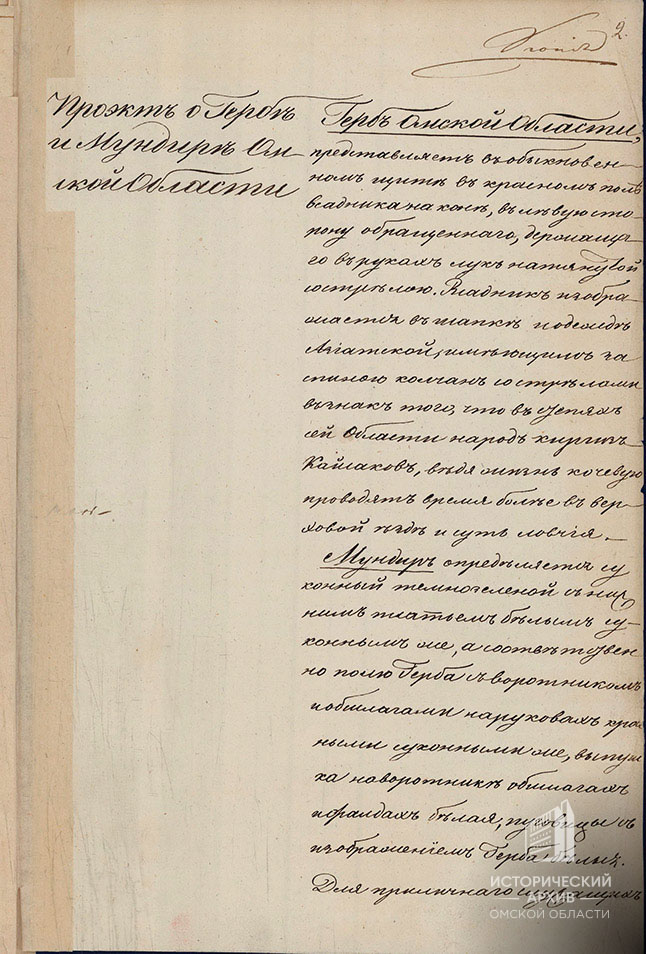 2.
Проэктъ о Гербѣ
и Мундирѣ Ом-
ской Области
Гербъ Омской Области,
представляетъ въ обыкновен-
номъ щитѣ въ красномъ полѣ
всадника на конѣ, въ лѣвую сто-
рону обращеннаго, держаща-
го въ рукахъ лукъ натянутой
со стрѣлою. Всадникъ изобра-
жается въ шапкѣ и одеждѣ
Азіатской, имѣющимъ за
спиною колчанъ со стрѣлами
въ знакъ того, что въ степяхъ
сей Области народъ киргизъ-
Кайсаковъ, ведя жизнь кочевую
проводятъ время болѣе въ вер-
ховой ѣздѣ и суть ловчія.
Мундиръ опредѣляется су
конный темнозеленой съниж
нимъ платьемъ бѣлымъ су-
коннымъ же, а соотвѣтствен
но полю Герба съ воротникомъ
и обшлагами на рукавахъ крас
ными суконными же, выпуш
ка на воротникѣ обшлагахъ
и фалдахъ бѣлая, пуговицы съ
изображеніемъ Герба бѣлыя.
Для приличнаго служащихъ
ИСТОРИЧЕСКИЙ
АРХИВ
ОМСКОЙ ОБЛАСТИ